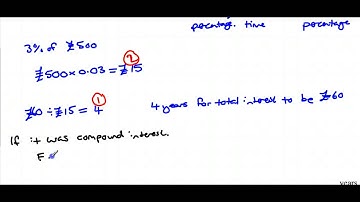 percentage. time percentage
3% of Ƶ500
②
Ƶ500 x 0.03 = Ƶ15
①
Ƶ60 ÷ Ƶ15 = 4 4 years for total interest to be Ƶ60
If it was compound interest.
F
years